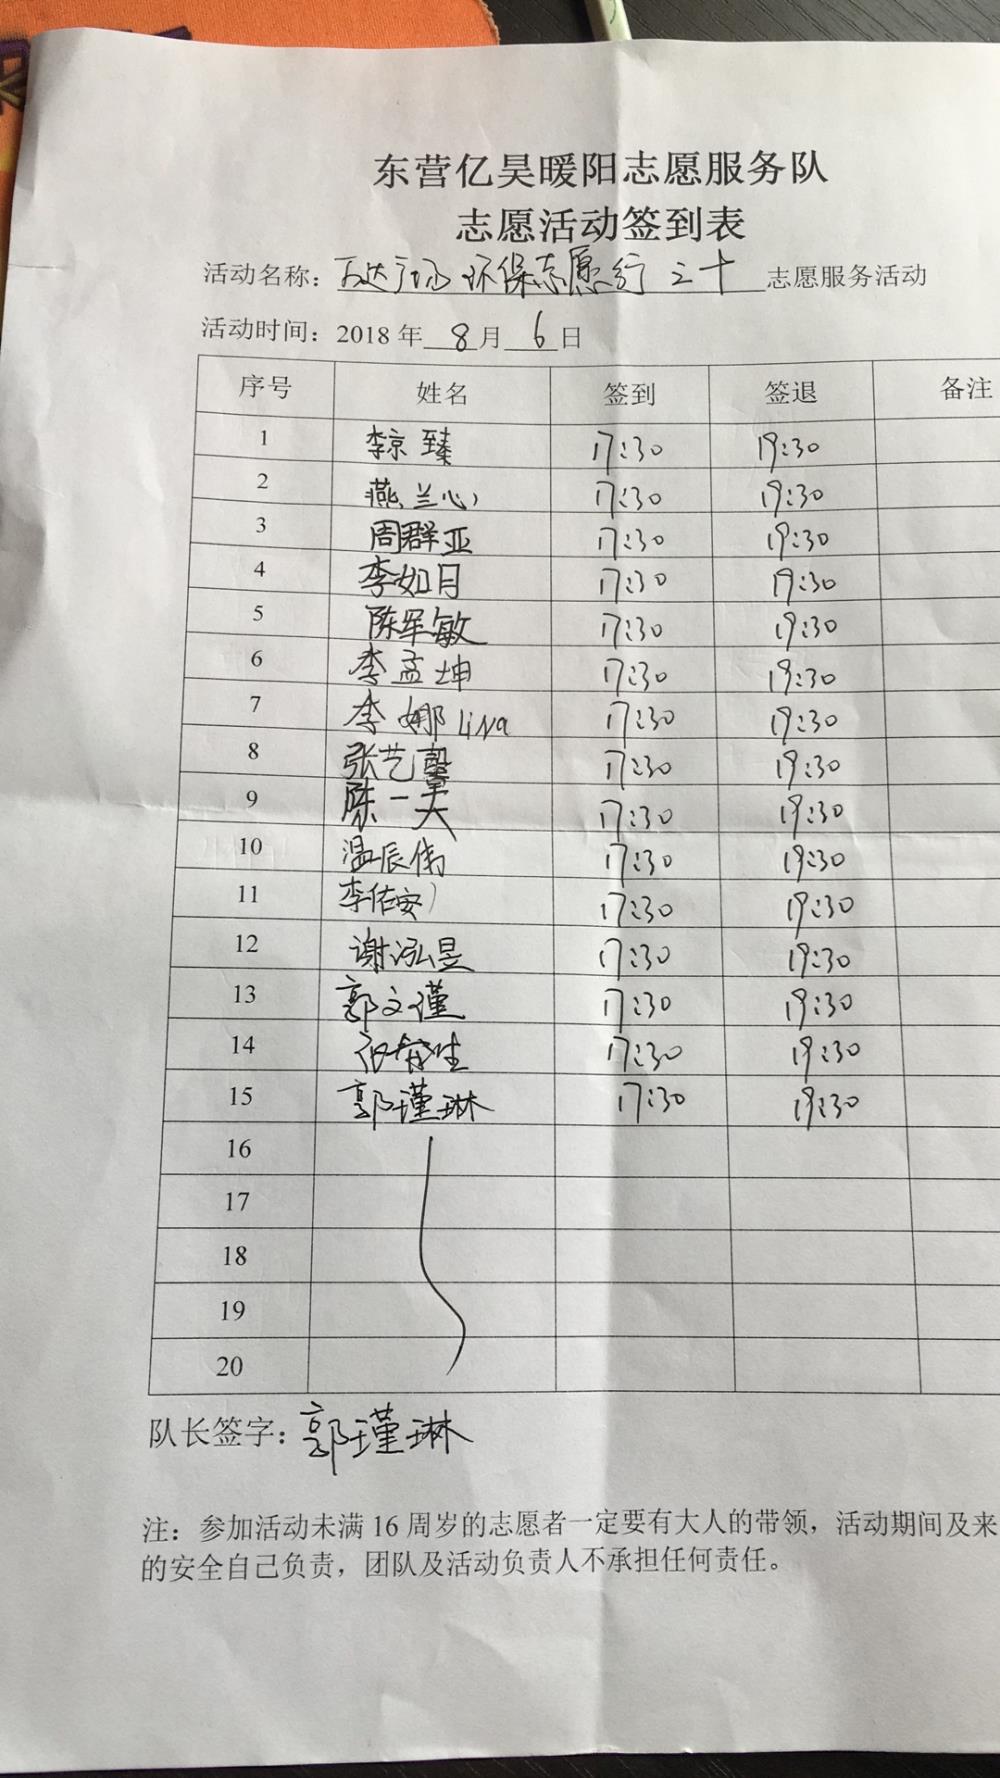 东营亿昊暖阳志愿服务队
志愿活动签到表
活动名称：万达广场环保志愿行之十志愿服务活动
活动时间：2018年8月6日
序号 姓名 签到 签退 备注
1 李京臻 17:30 19:30
2 燕兰心 17:30 19:30
3 周群亚 17:30 19:30
4 李如月 17:30 19:30
5 陈军敏 17:30 19:30
6 李孟坤 17:30 19:30
7 李娜 LiNa 17:30 19:30
8 张艺馨 17:30 19:30
9 陈一夫 17:30 19:30
10 温辰伟 17:30 19:30
11 李佑安 17:30 19:30
12 谢泓昱 17:30 19:30
13 郭文瑾 17:30 19:30
14 17:30 19:30
15 郭瑾琳 17:30 19:30
16
17
18
19
20
队长签字：郭瑾琳
注：参加活动未满16周岁的志愿者一定要有大人的带领，活动期间及来
的安全自己负责，团队及活动负责人不承担任何责任。